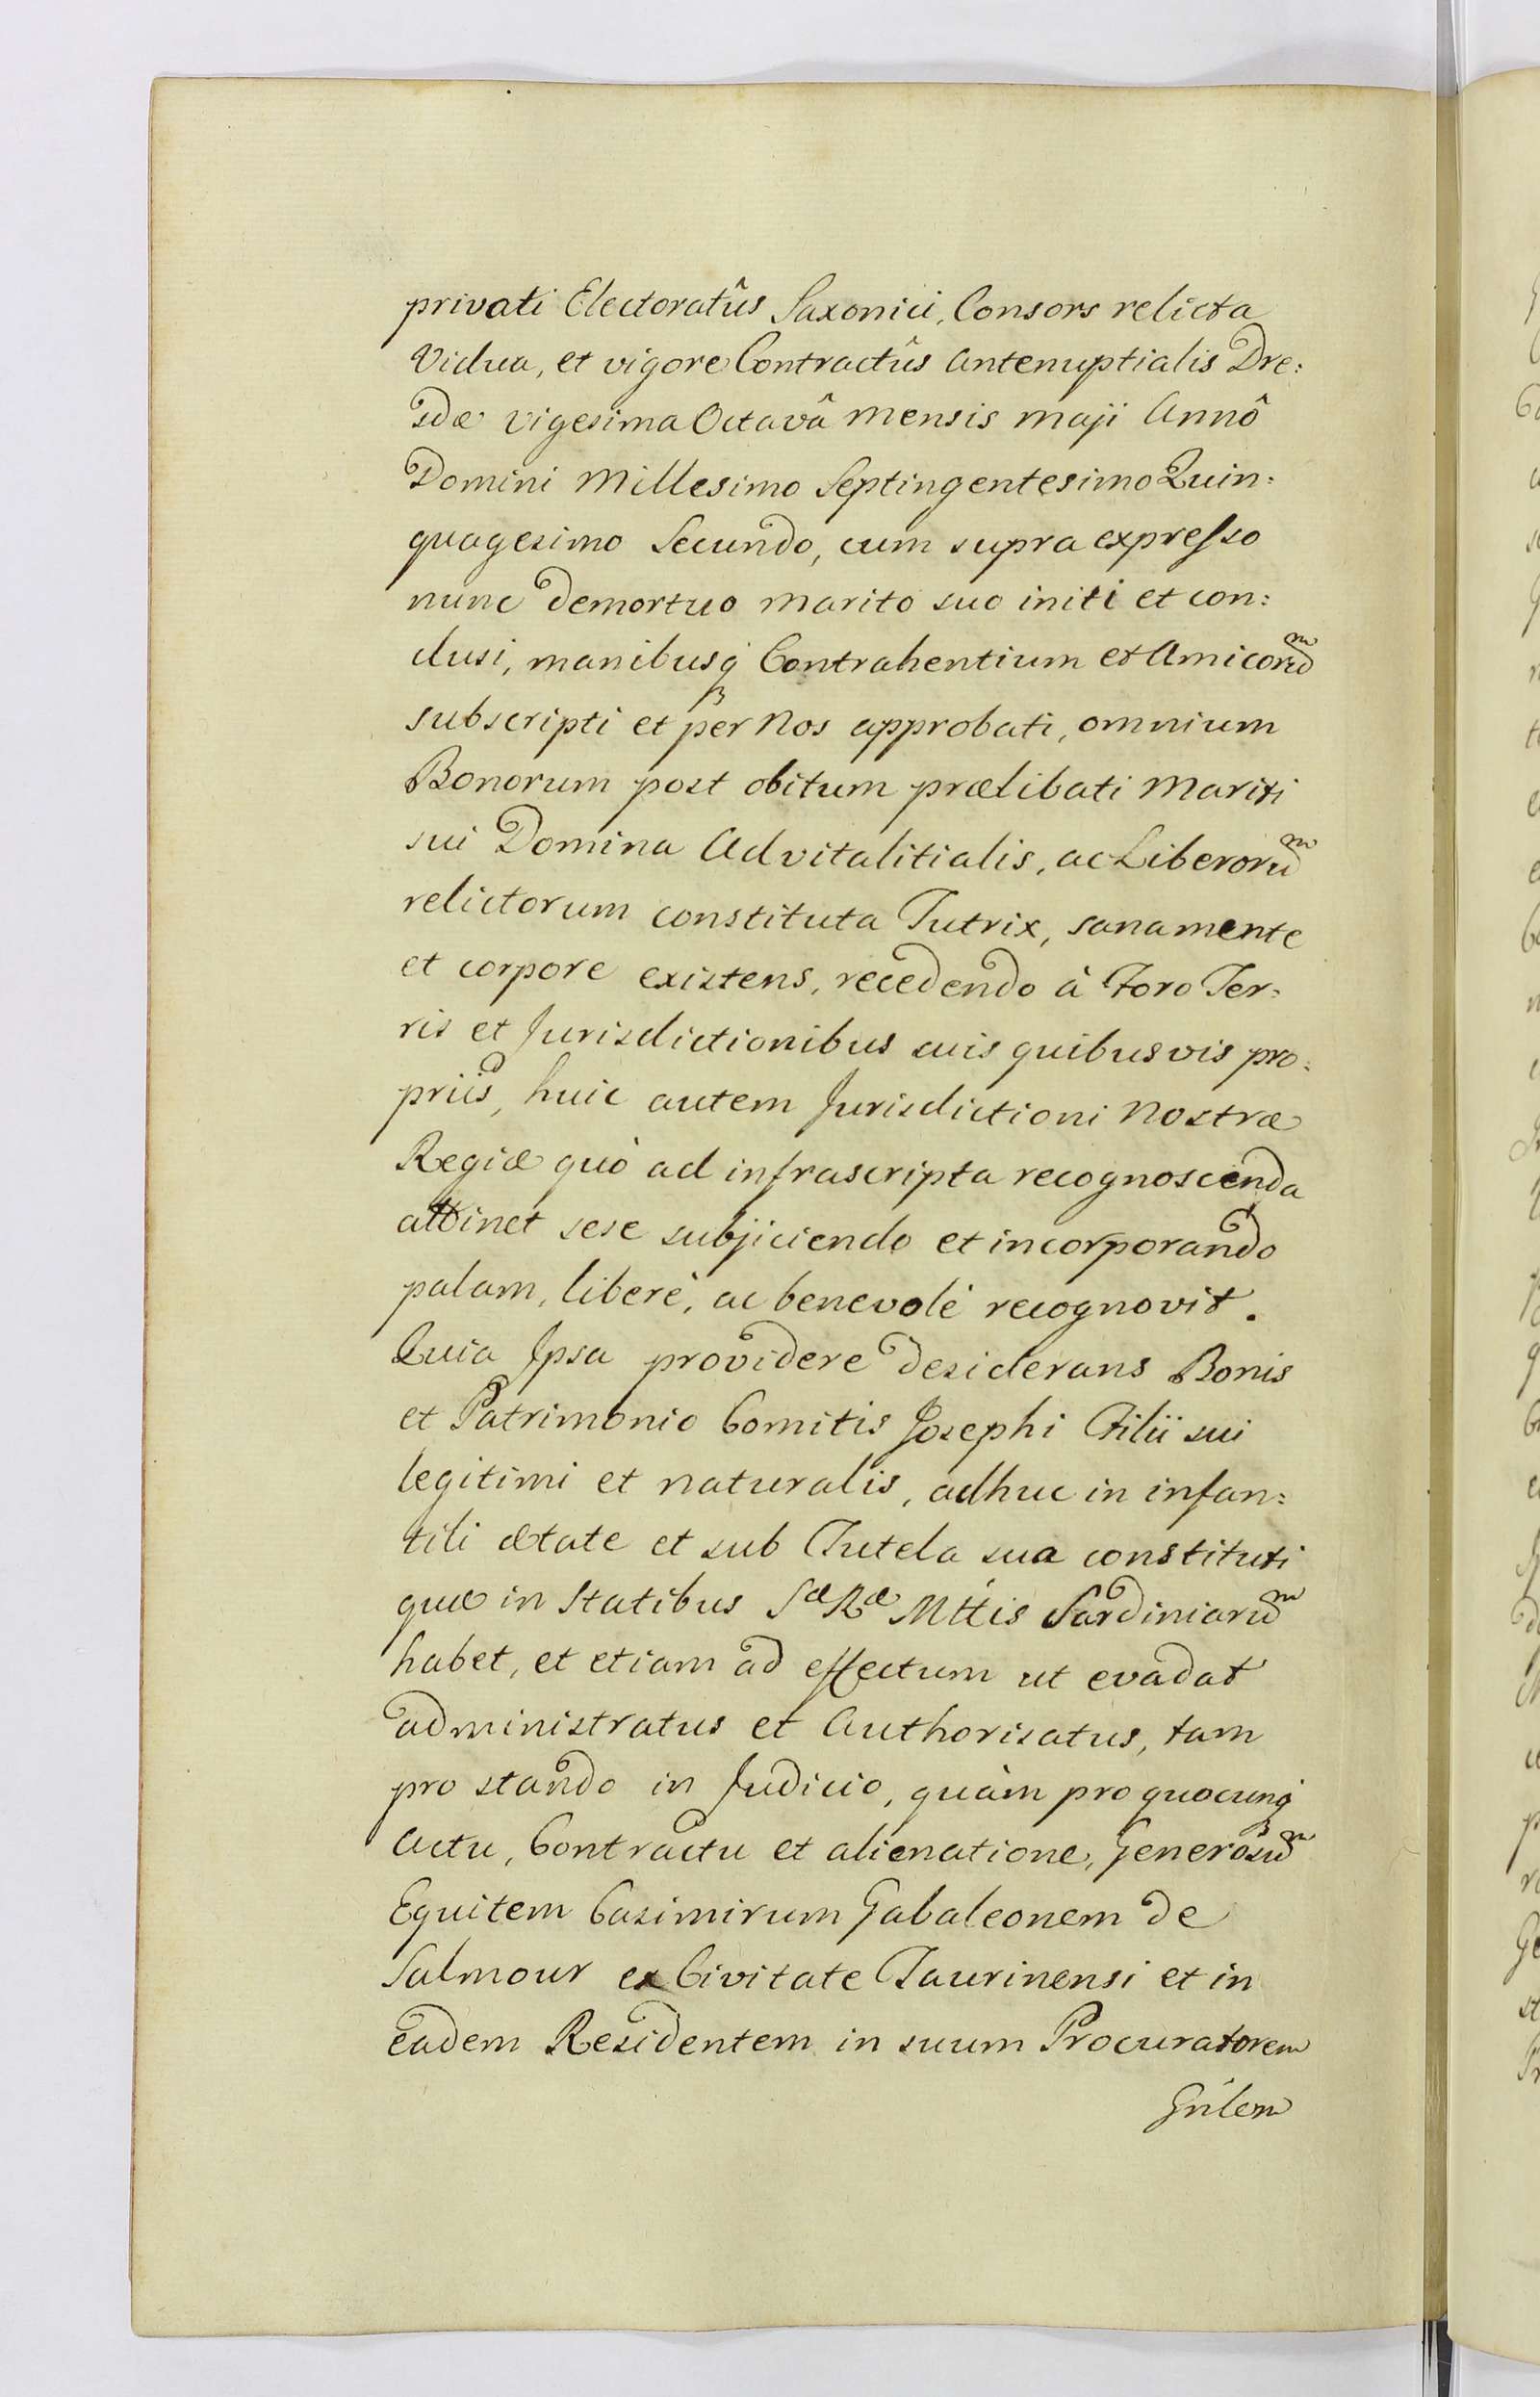 privati Electoratûs Saxonici, Consors relicta
Vidua, et vigore Contractûs Antenuptialis Dre:
sdæ vigesima Octavâ Mensis Maji Annô
Domini Millesimo Septingentesimo Quin:
quagesimo Secundo, cum supra expresso
nunc demortuo Marito suo initi et con:
clusi, manibusq́ Contrahentium et Amicorum
subscripti et per Nos approbati, omnium
Bonorum post obitum prælibati Mariti
sui Domina Advitalitialis, ac Liberorum
relictorum constituta Tutrix, sana mente
et corpore existens, recedendo à Foro Ter:
ris et Jurisdictionibus suis quibusvis pro:
priis, huic autem Jurisdictioni Nostræ
Regiæ quò ad infrascripta recognoscenda
attinet sese subjiciendo et incorporando
palam, liberè, ac benevolè recognovit.
Quia Ipsa providere desiderans Bonis
et Patrimonio Comitis Josephi Filii sui
legitimi et naturalis, adhuc in infan:
tili ætate et sub Tutela sua constituti
quæ in Statibus Sæ Ræ Mttis Sardiniarum
habet, et etiam ad effectum ut evadat
administratus et Authorisatus, tam
pro stando in Judicio, quàm pro quocunq́
Actu, Contractu et alienatione, Generosum
Equitem Casimirum Gabaleonem de
Salmour ex Civitate Taurinensi et in
eadem Residentem in suum Procuratorem
Gńlem